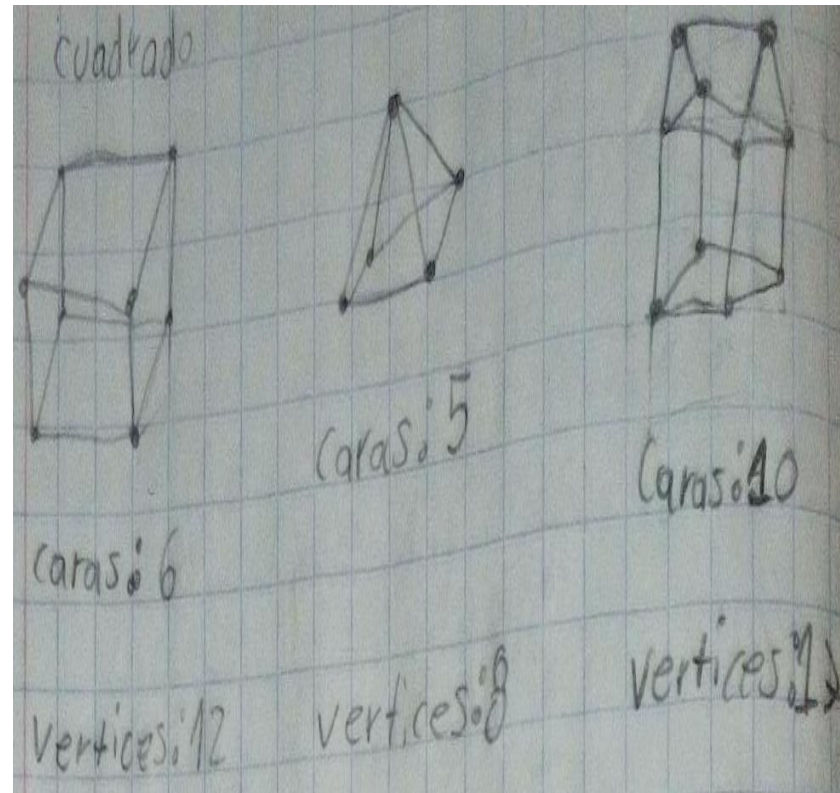 cuadrado
caras: 6
vertices: 12
caras: 5
vertices: 8
Caras: 10
vertices: